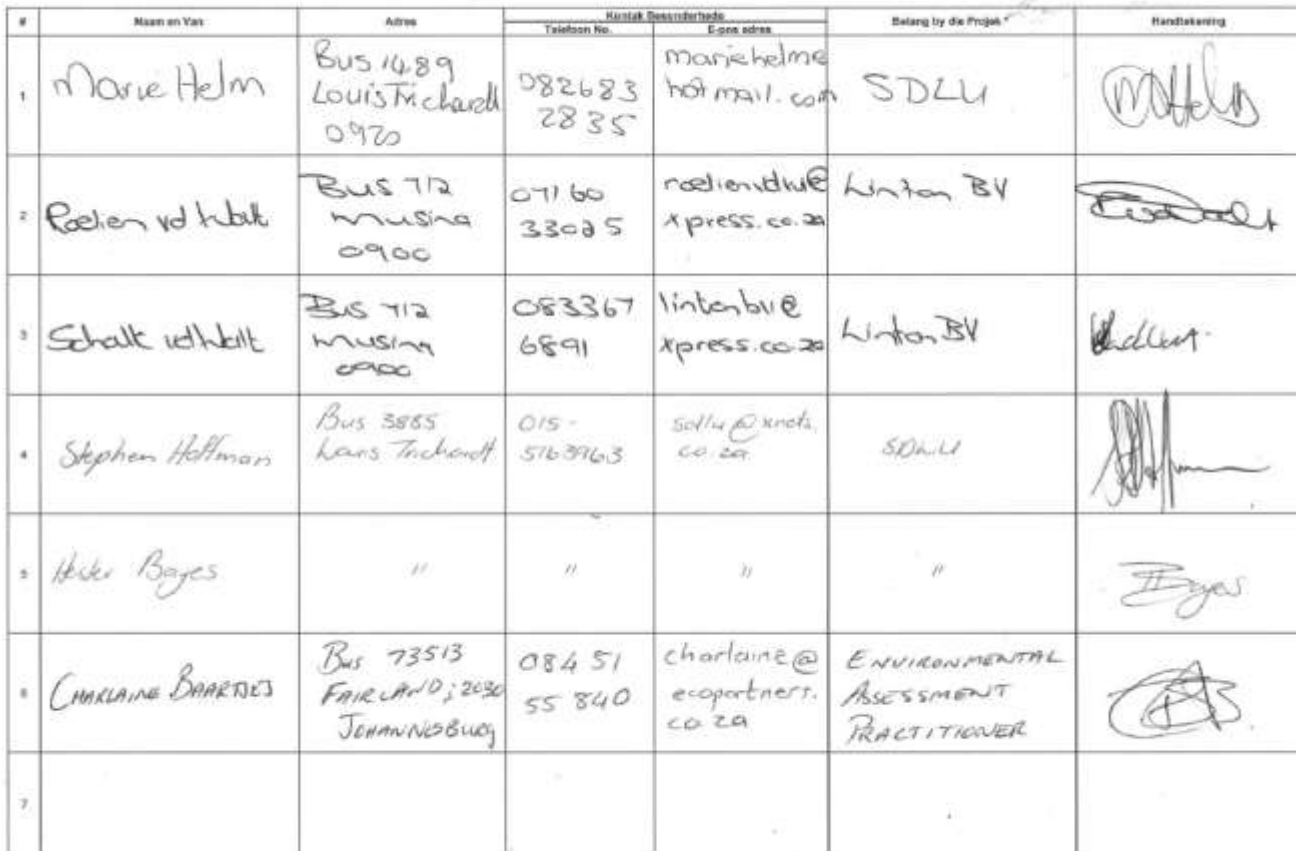 #
Naam en Van
Adres
Kontak Besonderhede
Telefoon No.
E-pos adres
Belang by die Projek *
Handtekening
1
Marie Helm
Bus 1489
Louis Trichardt
0920
082683
2835
mariehelm@
hotmail.com
SDLU
2
Roelien vd Walt
Bus 712
Musina
0900
07160
33025
roelienvdw@
xpress.co.za
Linton BV
3
Schalk vd Walt
Bus 712
Musina
0900
083367
6891
lintonbv@
xpress.co.za
Linton BV
4
Stephen Hoffman
Bus 3885
Louis Trichardt
015-
5163963
sdlu@xnets.
co.za
SDLU
5
Hester Bayes
"
"
"
"
Bayes
6
CHARLAINE BAARTJES
Bus 73513
FAIRLAND; 2030
JOHANNESBURG
084 51
55 840
charlaine@
ecopartners.
co.za
ENVIRONMENTAL
ASSESSMENT
PRACTITIONER
7